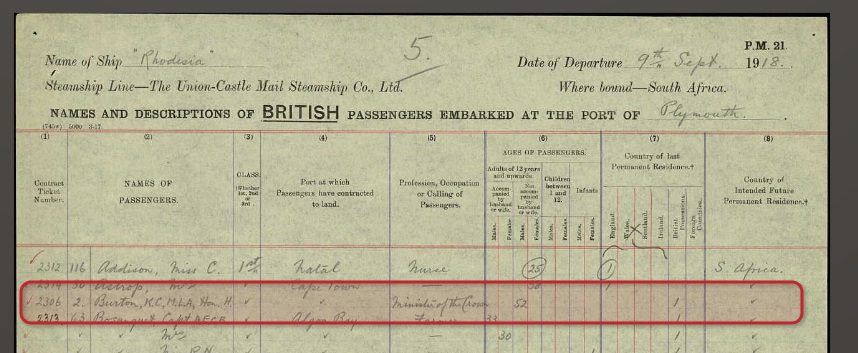 P.M. 21.
5.
Name of Ship "Rhodesia" Date of Departure 9th Sept. 1918.
Steamship Line—The Union-Castle Mail Steamship Co., Ltd. Where bound—South Africa.
NAMES AND DESCRIPTIONS OF BRITISH PASSENGERS EMBARKED AT THE PORT OF Plymouth.
(1) (2) (3) (4) (5) (6) (7) (8)
Contract Ticket Number.
NAMES OF PASSENGERS.
CLASS. (Whether 1st, 2nd or 3rd)
Port at which Passengers have contracted to land.
Profession, Occupation or Calling of Passengers.
AGES OF PASSENGERS.
Adults of 12 years and upwards.
Accompanied by husband or wife.
Not accompanied by husband or wife.
Children between 1 and 12.
Infants.
Males. Females. Males. Females. Males. Females. Males. Females.
Country of last Permanent Residence.†
England. Wales. Scotland. Ireland. British Possessions. Foreign Countries.
Country of Intended Future Permanent Residence.†
2312 116 Addison, Miss C. 1st Natal Nurse 25 1 S. Africa.
30 Astrop, Mrs " Cape Town — 30 1 "
2306 2. Burton, K.C, M.L.A, Hon. H. " " Minister of the Crown 52 1 "
2313 63 Capt " Algoa Bay 33 1 "
" " Mrs " " — 30 1 "